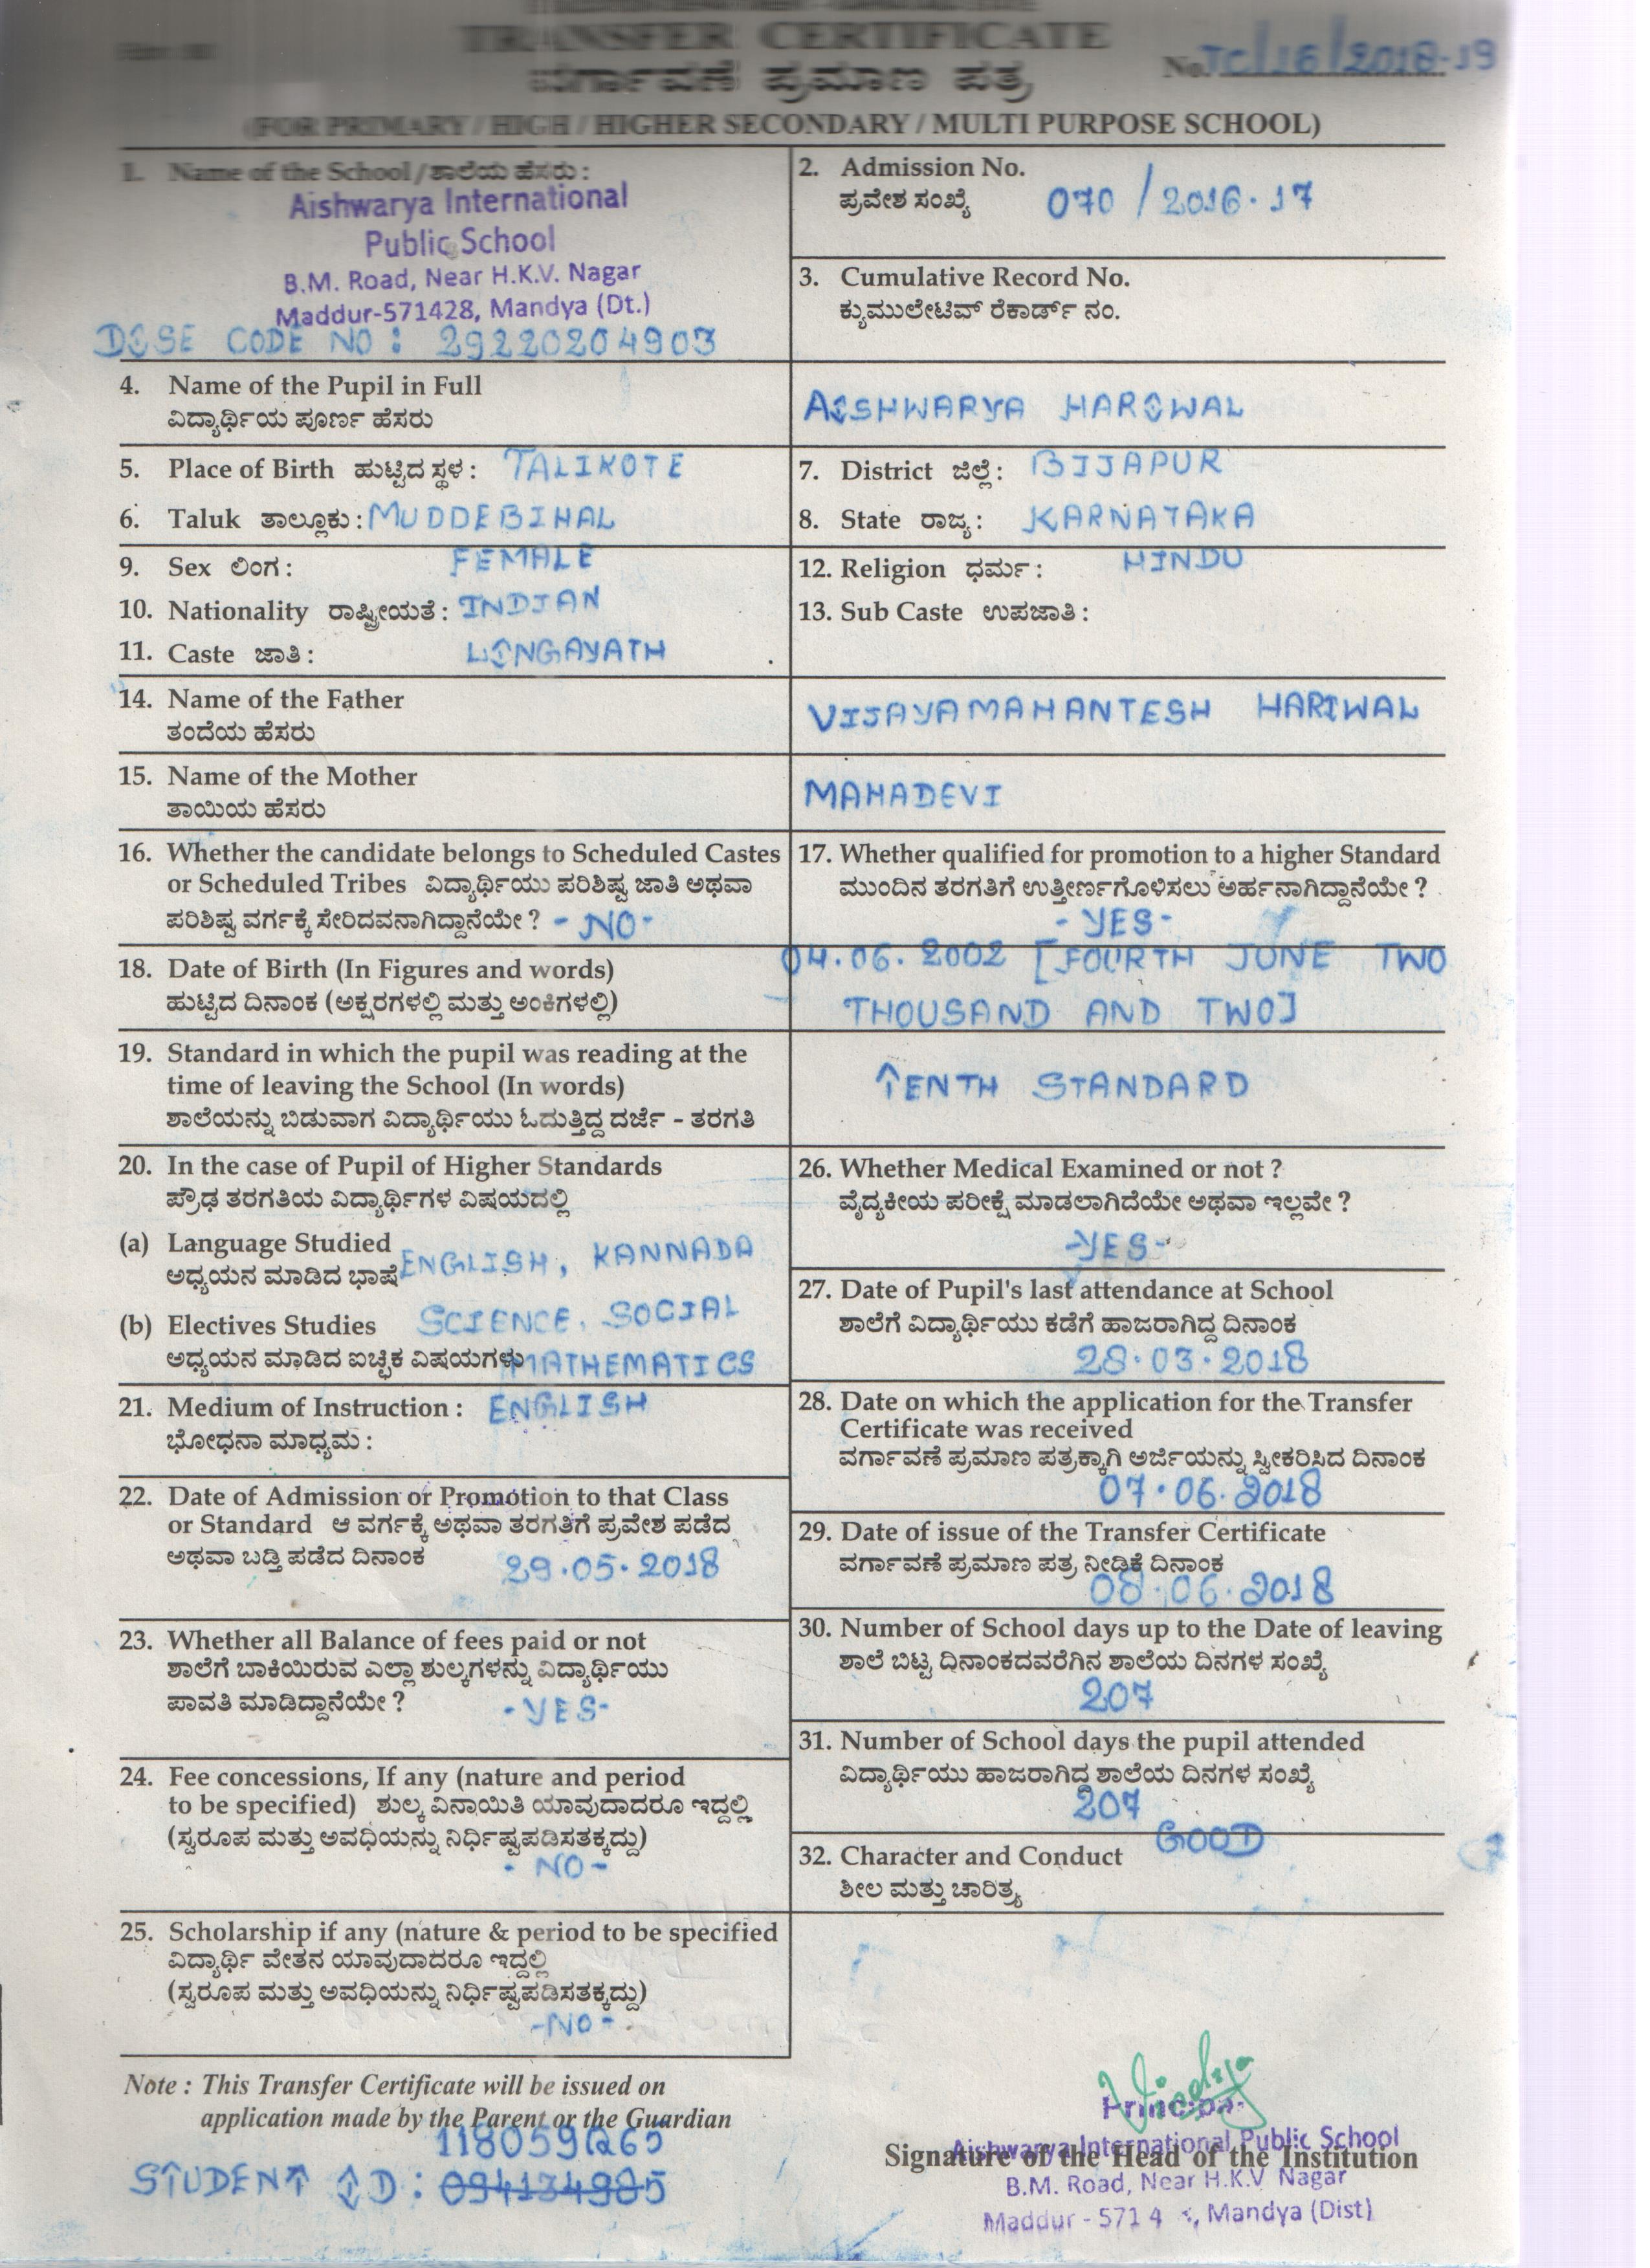 TRANSFER CERTIFICATE
ವರ್ಗಾವಣೆ ಪ್ರಮಾಣ ಪತ್ರ
No. TC/16/2018-19
(FOR PRIMARY / HIGH / HIGHER SECONDARY / MULTI PURPOSE SCHOOL)
1. Name of the School / ಶಾಲೆಯ ಹೆಸರು :
Aishwarya International
Public School
B.M. Road, Near H.K.V. Nagar
Maddur-571428, Mandya (Dt.)
DISE CODE NO : 29220204903
2. Admission No.
ಪ್ರವೇಶ ಸಂಖ್ಯೆ 070 / 2016-17
3. Cumulative Record No.
ಕ್ಯುಮುಲೇಟಿವ್ ರೆಕಾರ್ಡ್ ನಂ.
4. Name of the Pupil in Full
ವಿದ್ಯಾರ್ಥಿಯ ಪೂರ್ಣ ಹೆಸರು
AISHWARYA HARIWAL
5. Place of Birth ಹುಟ್ಟಿದ ಸ್ಥಳ : TALIKOTE
6. Taluk ತಾಲ್ಲೂಕು : MUDDEBIHAL
7. District ಜಿಲ್ಲೆ : BIJAPUR
8. State ರಾಜ್ಯ : KARNATAKA
9. Sex ಲಿಂಗ : FEMALE
10. Nationality ರಾಷ್ಟ್ರೀಯತೆ : INDIAN
11. Caste ಜಾತಿ : LINGAYATH
12. Religion ಧರ್ಮ : HINDU
13. Sub Caste ಉಪಜಾತಿ :
14. Name of the Father
ತಂದೆಯ ಹೆಸರು
VIJAYAMAHANTESH HARIWAL
15. Name of the Mother
ತಾಯಿಯ ಹೆಸರು
MAHADEVI
16. Whether the candidate belongs to Scheduled Castes
or Scheduled Tribes ವಿದ್ಯಾರ್ಥಿಯು ಪರಿಶಿಷ್ಟ ಜಾತಿ ಅಥವಾ
ಪರಿಶಿಷ್ಟ ವರ್ಗಕ್ಕೆ ಸೇರಿದವನಾಗಿದ್ದಾನೆಯೇ ? - NO -
17. Whether qualified for promotion to a higher Standard
ಮುಂದಿನ ತರಗತಿಗೆ ಉತ್ತೀರ್ಣಗೊಳಿಸಲು ಅರ್ಹನಾಗಿದ್ದಾನೆಯೇ ?
- YES -
18. Date of Birth (In Figures and words)
ಹುಟ್ಟಿದ ದಿನಾಂಕ (ಅಕ್ಷರಗಳಲ್ಲಿ ಮತ್ತು ಅಂಕಿಗಳಲ್ಲಿ)
04.06.2002 [FOURTH JUNE TWO
THOUSAND AND TWO]
19. Standard in which the pupil was reading at the
time of leaving the School (In words)
ಶಾಲೆಯನ್ನು ಬಿಡುವಾಗ ವಿದ್ಯಾರ್ಥಿಯು ಓದುತ್ತಿದ್ದ ದರ್ಜೆ - ತರಗತಿ
TENTH STANDARD
20. In the case of Pupil of Higher Standards
ಪ್ರೌಢ ತರಗತಿಯ ವಿದ್ಯಾರ್ಥಿಗಳ ವಿಷಯದಲ್ಲಿ
(a) Language Studied
ಅಧ್ಯಯನ ಮಾಡಿದ ಭಾಷೆ ENGLISH, KANNADA
(b) Electives Studies SCIENCE, SOCIAL
ಅಧ್ಯಯನ ಮಾಡಿದ ಐಚ್ಛಿಕ ವಿಷಯಗಳು MATHEMATICS
21. Medium of Instruction : ENGLISH
ಭೋಧನಾ ಮಾಧ್ಯಮ :
22. Date of Admission or Promotion to that Class
or Standard ಆ ವರ್ಗಕ್ಕೆ ಅಥವಾ ತರಗತಿಗೆ ಪ್ರವೇಶ ಪಡೆದ
ಅಥವಾ ಬಡ್ತಿ ಪಡೆದ ದಿನಾಂಕ
29.05.2018
23. Whether all Balance of fees paid or not
ಶಾಲೆಗೆ ಬಾಕಿಯಿರುವ ಎಲ್ಲಾ ಶುಲ್ಕಗಳನ್ನು ವಿದ್ಯಾರ್ಥಿಯು
ಪಾವತಿ ಮಾಡಿದ್ದಾನೆಯೇ ? - YES -
24. Fee concessions, If any (nature and period
to be specified) ಶುಲ್ಕ ವಿನಾಯಿತಿ ಯಾವುದಾದರೂ ಇದ್ದಲ್ಲಿ
(ಸ್ವರೂಪ ಮತ್ತು ಅವಧಿಯನ್ನು ನಿರ್ಧಿಷ್ಟಪಡಿಸತಕ್ಕದ್ದು)
- NO -
25. Scholarship if any (nature & period to be specified
ವಿದ್ಯಾರ್ಥಿ ವೇತನ ಯಾವುದಾದರೂ ಇದ್ದಲ್ಲಿ
(ಸ್ವರೂಪ ಮತ್ತು ಅವಧಿಯನ್ನು ನಿರ್ಧಿಷ್ಟಪಡಿಸತಕ್ಕದ್ದು)
- NO -
26. Whether Medical Examined or not ?
ವೈದ್ಯಕೀಯ ಪರೀಕ್ಷೆ ಮಾಡಲಾಗಿದೆಯೇ ಅಥವಾ ಇಲ್ಲವೇ ?
- YES -
27. Date of Pupil's last attendance at School
ಶಾಲೆಗೆ ವಿದ್ಯಾರ್ಥಿಯು ಕಡೆಗೆ ಹಾಜರಾಗಿದ್ದ ದಿನಾಂಕ
28.03.2018
28. Date on which the application for the Transfer
Certificate was received
ವರ್ಗಾವಣೆ ಪ್ರಮಾಣ ಪತ್ರಕ್ಕಾಗಿ ಅರ್ಜಿಯನ್ನು ಸ್ವೀಕರಿಸಿದ ದಿನಾಂಕ
07.06.2018
29. Date of issue of the Transfer Certificate
ವರ್ಗಾವಣೆ ಪ್ರಮಾಣ ಪತ್ರ ನೀಡಿಕೆ ದಿನಾಂಕ
08.06.2018
30. Number of School days up to the Date of leaving
ಶಾಲೆ ಬಿಟ್ಟ ದಿನಾಂಕದವರೆಗಿನ ಶಾಲೆಯ ದಿನಗಳ ಸಂಖ್ಯೆ
207
31. Number of School days the pupil attended
ವಿದ್ಯಾರ್ಥಿಯು ಹಾಜರಾಗಿದ್ದ ಶಾಲೆಯ ದಿನಗಳ ಸಂಖ್ಯೆ
207
32. Character and Conduct GOOD
ಶೀಲ ಮತ್ತು ಚಾರಿತ್ರ್ಯ
Note : This Transfer Certificate will be issued on
application made by the Parent or the Guardian
STUDENT ID : 094134985
Principal
Aishwarya International Public School
Signature of the Head of the Institution
B.M. Road, Near H.K.V Nagar
Maddur - 571 4 , Mandya (Dist)